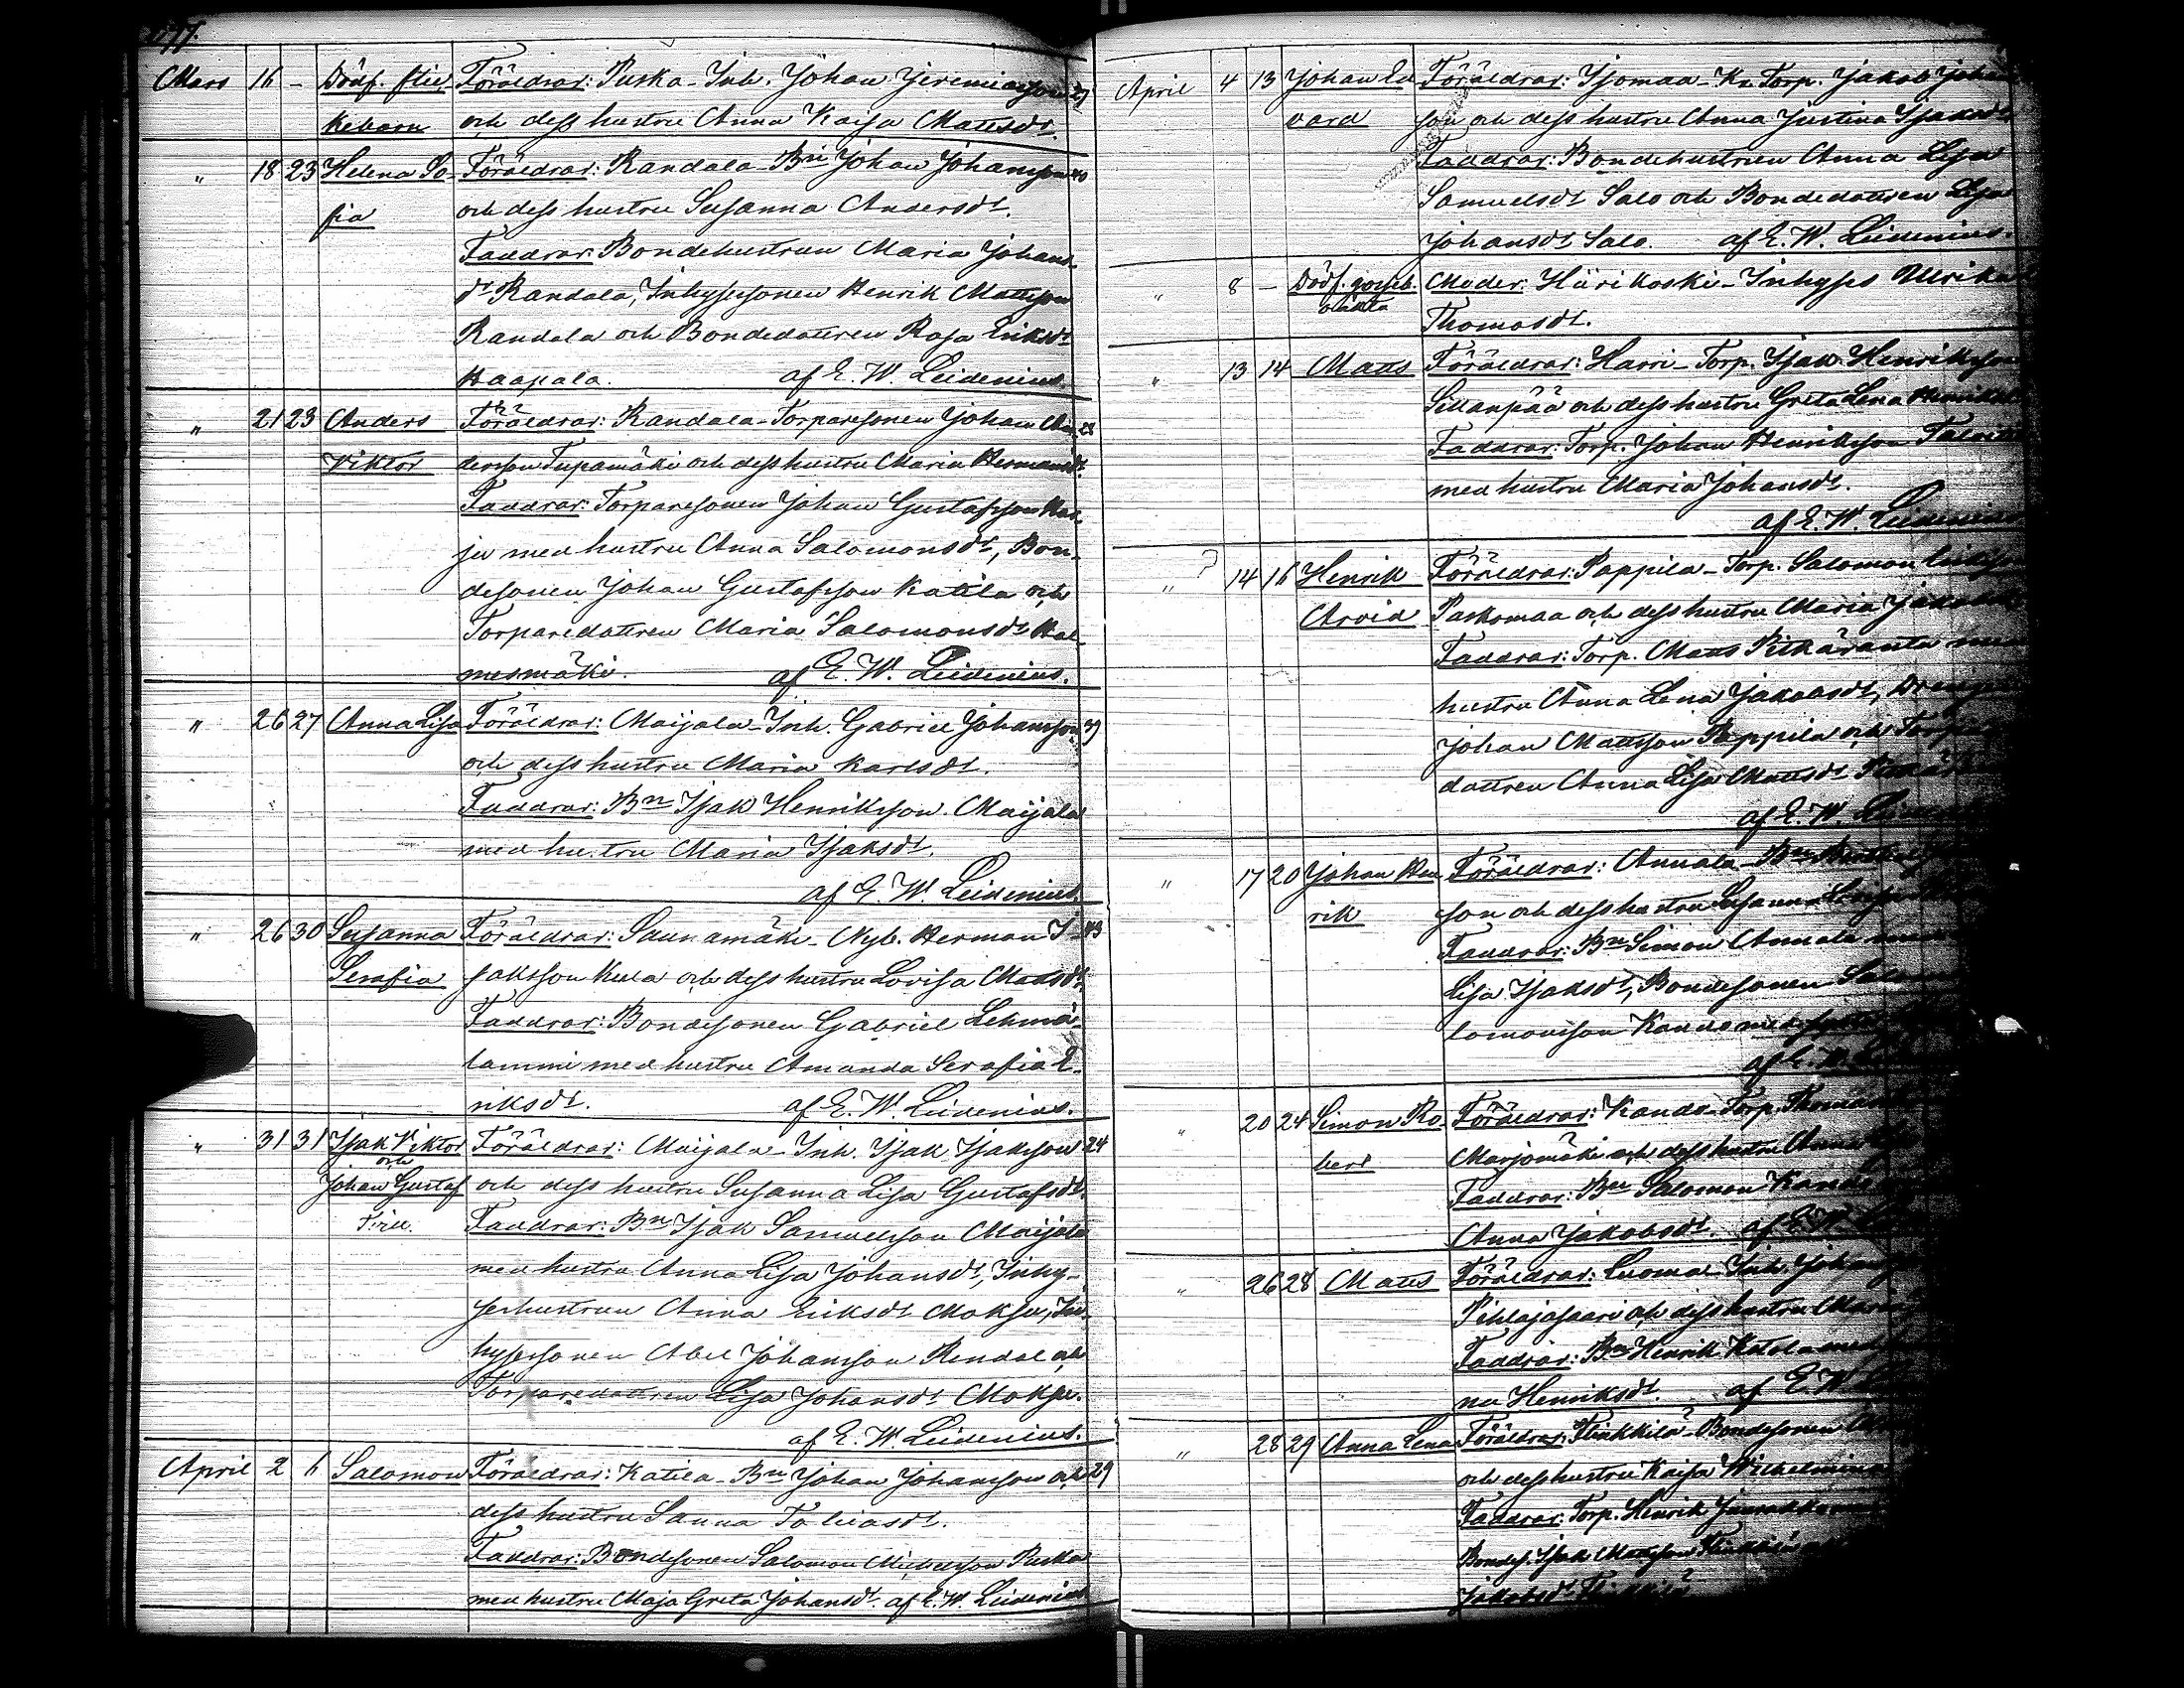 177.
Mars 16 - Dödf. flic- Föräldrar: Puska - Inh. Johan Jeremiasson 27
kebarn och dess hustru Anna Kaisa Mattsdr.
" 18 23 Helena So- Föräldrar: Randala - Bn Johan Johansson 40
fia och dess hustru Susanna Andersdr.
Faddrar: Bondehustrun Maria Johans-
dr Randala, Inhysersonen Henrik Mattsson
Randala och Bondedottren Kajsa Eriksdr
Haapala. af E. W. Leidenius.
" 21 23 Anders Föräldrar: Randala - Torparesonen Johan An-
Viktor dersson Teepamäki och dess hustru Maria Hermansdr.
Faddrar: Torparesonen Johan Gustafsson
ju med hustru Anna Salomonsdr, Bon-
desonen Johan Gustafsson Katila och
Torparedottren Maria Salomonsdr
mesmäki. af E. W. Leidenius.
" 26 27 Anna Lisa Föräldrar: Maijala - Inh. Gabriel Johansson 39
och dess hustru Maria Karlsdr.
Faddrar: Bn Isak Henriksson Maijala
med hustru Maria Isaksdr.
af E. W. Leidenius.
" 26 30 Susanna Föräldrar: Saunamäki - Nyb. Herman I- 43
Serafia saksson Keula och dess hustru Lovisa Mattsdr.
Faddrar: Bondesonen Gabriel Lehmä-
lammi med hustru Amanda Serafia E-
riksdr. af E. W. Leidenius.
" 31 31 Isak Viktor Föräldrar: Maijala - Inh. Isak Isaksson 24
och
Johan Gustaf och dess hustru Susanna Lisa Gustafsdr.
Faddrar: Bn Isak Samuelsson Maijala
med hustru Anna Lisa Johansdr, Inhy-
serhustrun Anna Eriksdr Moksu, In-
hysersonen Abel Johansson Rendal och
Torparedottren Lisa Johansdr Moksu.
af E. W. Leidenius.
April 2 6 Salomon Föräldrar: Katila - Bn Johan Johansson och 29
dess hustru Sanna Tobiasdr.
Faddrar: Bondesonen Salomon Michelsson Puska
med hustru Maja Greta Johansdr. af E. W. Leidenius
April 4 13 Johan Ed Föräldrar: Isomaa - Kr. Torp. Jakob Johan
vard son och dess hustru Anna Justina Isaksdr.
Faddrar: Bondehustrun Anna Lisa
Samuelsdr Salo och Bondedottren Lisa
Johansdr Salo. af E. W. Leidenius.
" 8 - Dödf. gosseb. Moder: Hiirikoski - Inhyses Ulrika
oäkta Thomasdr.
" 13 14 Matts Föräldrar: Harri - Torp. Isak Henriksson
Sillanpää och dess hustru Greta Lena Henriksdr
Faddrar: Torp. Johan Henriksson
med hustru Maria Johansdr.
af E. W. Leidenius
" ? 14 16 Henrik Föräldrar: Pappila - Torp. Salomon
Arvid Paskomaa och dess hustru Maria
Faddrar: Torp. Matts Pitkäranta med
hustru Anna Lena Jakobsdr,
Johan Mattsson Pappila och
dottren Anna Lisa Mattsdr
af E. W.
" 17 20 Johan Hen Föräldrar: Annala - Bn
rik son och dess hustru Susanna
Faddrar: Bn Simon Annala
Lisa Isaksdr, Bondesonen
lomonsson Kando med
af E. W.
" 20 24 Simon Ro Föräldrar: Kando - Torp. Thomas
bert Marjomäki och dess hustru Anna
Faddrar: Bn Salomon Kando
Anna Jakobsdr. af E. W.
" 26 28 Matts Föräldrar: Luoma - Inh. Johan
Pihlajasaari och dess hustru Maria
Faddrar: Bn Henrik Katila med
na Henriksdr. af E. W.
" 28 29 Anna Lena Föräldrar: Flinkkilä - Bondesonen
och dess hustru Kaisa Wilhelmina
Faddrar: Torp. Henrik
Bondes. Isak Mattsson Flinkkilä
Jakobsdr Flinkkilä